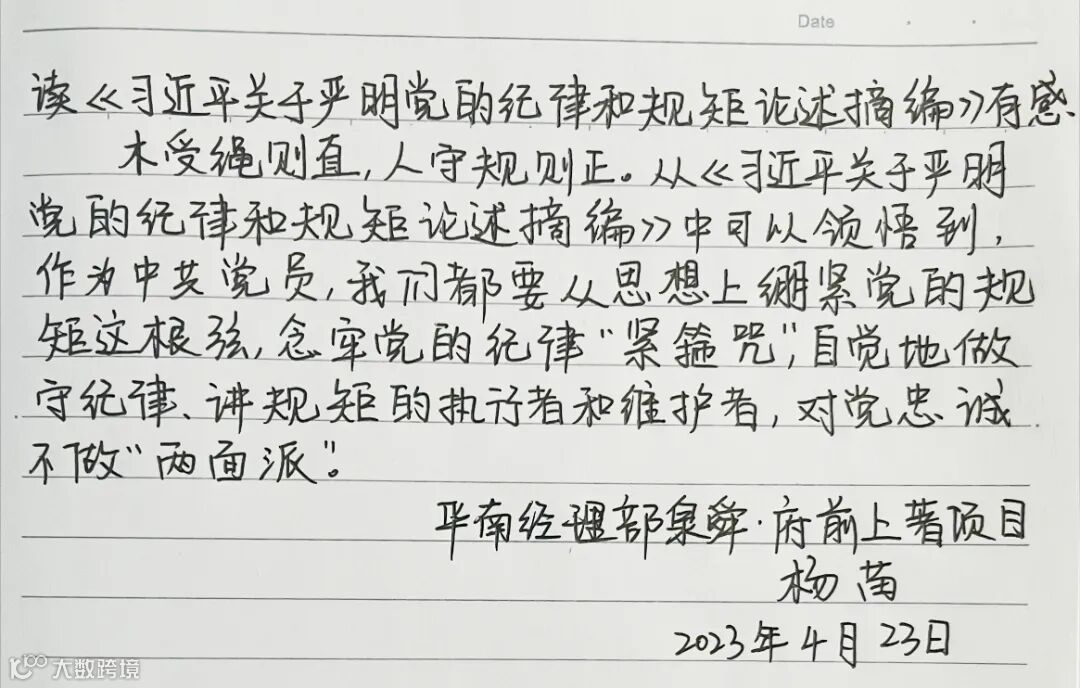 Date
读《习近平关于严明党的纪律和规矩论述摘编》有感
木受绳则直,人守规则正。从《习近平关于严明
党的纪律和规矩论述摘编》中可以领悟到,
作为中共党员,我们都要从思想上绷紧党的规
矩这根弦,念牢党的纪律“紧箍咒”,自觉地做
守纪律、讲规矩的执行者和维护者,对党忠诚
不做“两面派”。
华南经理部泉舜·府前上著项目
杨苗
2023年4月23日
大数跨境